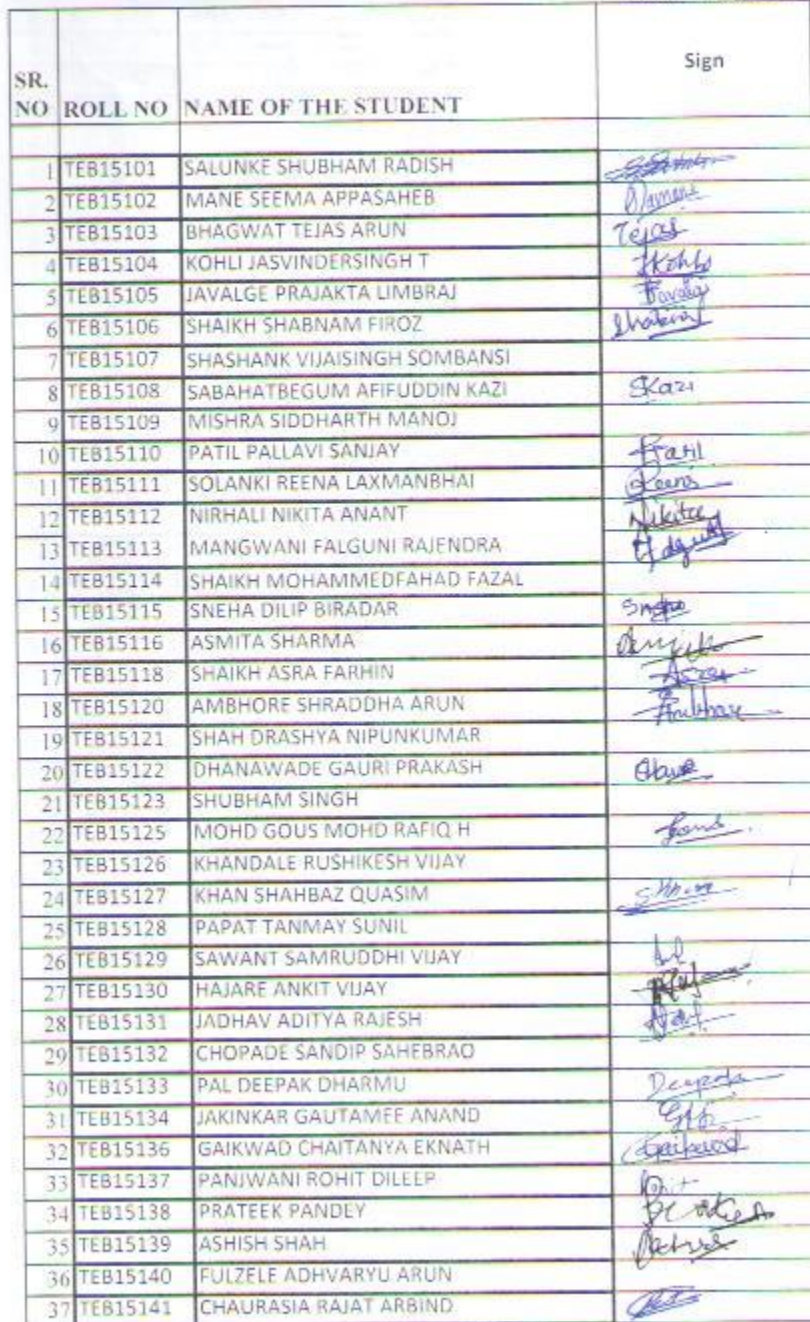 Sign
SR.
NO ROLL NO NAME OF THE STUDENT
1 TEB15101 SALUNKE SHUBHAM RADISH
2 TEB15102 MANE SEEMA APPASAHEB
3 TEB15103 BHAGWAT TEJAS ARUN Tejas
4 TEB15104 KOHLI JASVINDERSINGH T
5 TEB15105 JAVALGE PRAJAKTA LIMBRAJ
6 TEB15106 SHAIKH SHABNAM FIROZ
7 TEB15107 SHASHANK VIJAISINGH SOMBANSI
8 TEB15108 SABAHATBEGUM AFIFUDDIN KAZI SKazi
9 TEB15109 MISHRA SIDDHARTH MANOJ
10 TEB15110 PATIL PALLAVI SANJAY Patil
11 TEB15111 SOLANKI REENA LAXMANBHAI Reena
12 TEB15112 NIRHALI NIKITA ANANT Nikita
13 TEB15113 MANGWANI FALGUNI RAJENDRA
14 TEB15114 SHAIKH MOHAMMEDFAHAD FAZAL
15 TEB15115 SNEHA DILIP BIRADAR Sneha
16 TEB15116 ASMITA SHARMA
17 TEB15118 SHAIKH ASRA FARHIN
18 TEB15120 AMBHORE SHRADDHA ARUN
19 TEB15121 SHAH DRASHYA NIPUNKUMAR
20 TEB15122 DHANAWADE GAURI PRAKASH
21 TEB15123 SHUBHAM SINGH
22 TEB15125 MOHD GOUS MOHD RAFIQ H
23 TEB15126 KHANDALE RUSHIKESH VIJAY
24 TEB15127 KHAN SHAHBAZ QUASIM
25 TEB15128 PAPAT TANMAY SUNIL
26 TEB15129 SAWANT SAMRUDDHI VIJAY
27 TEB15130 HAJARE ANKIT VIJAY
28 TEB15131 JADHAV ADITYA RAJESH
29 TEB15132 CHOPADE SANDIP SAHEBRAO
30 TEB15133 PAL DEEPAK DHARMU Deepak
31 TEB15134 JAKINKAR GAUTAMEE ANAND
32 TEB15136 GAIKWAD CHAITANYA EKNATH Gaikwad
33 TEB15137 PANJWANI ROHIT DILEEP Rohit
34 TEB15138 PRATEEK PANDEY
35 TEB15139 ASHISH SHAH
36 TEB15140 FULZELE ADHVARYU ARUN
37 TEB15141 CHAURASIA RAJAT ARBIND